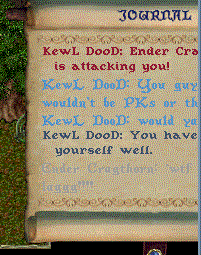 JOURNAL
KewL DooD: Ender Cra
is attacking you!
KewL DooD: You guy
wouldn't be PKs or th
KewL DooD: would yo
KewL DooD: You have
yourself well.
Ender Cragthorn: wtf